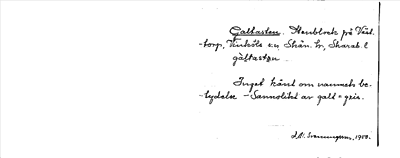 Galtasten. Stenblock på Väst-
-torp, Vinköls sn, Skån. hr, Skarab. l
galtastɘn
Inget känt om namnets be-
tydelse - Sannolikt av galt = gris.
1950.